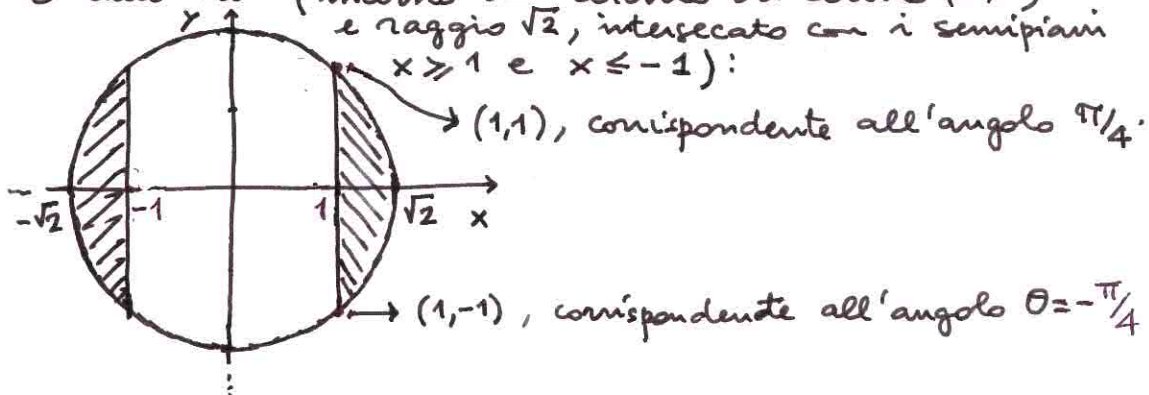 e raggio √2, intersecato con i semipiani
x ⩾ 1 e x ≤ -1):
y
(1,1), corrispondente all'angolo π/4.
-√2 -1 1 √2 x
(1,-1), corrispondente all'angolo θ=-π/4